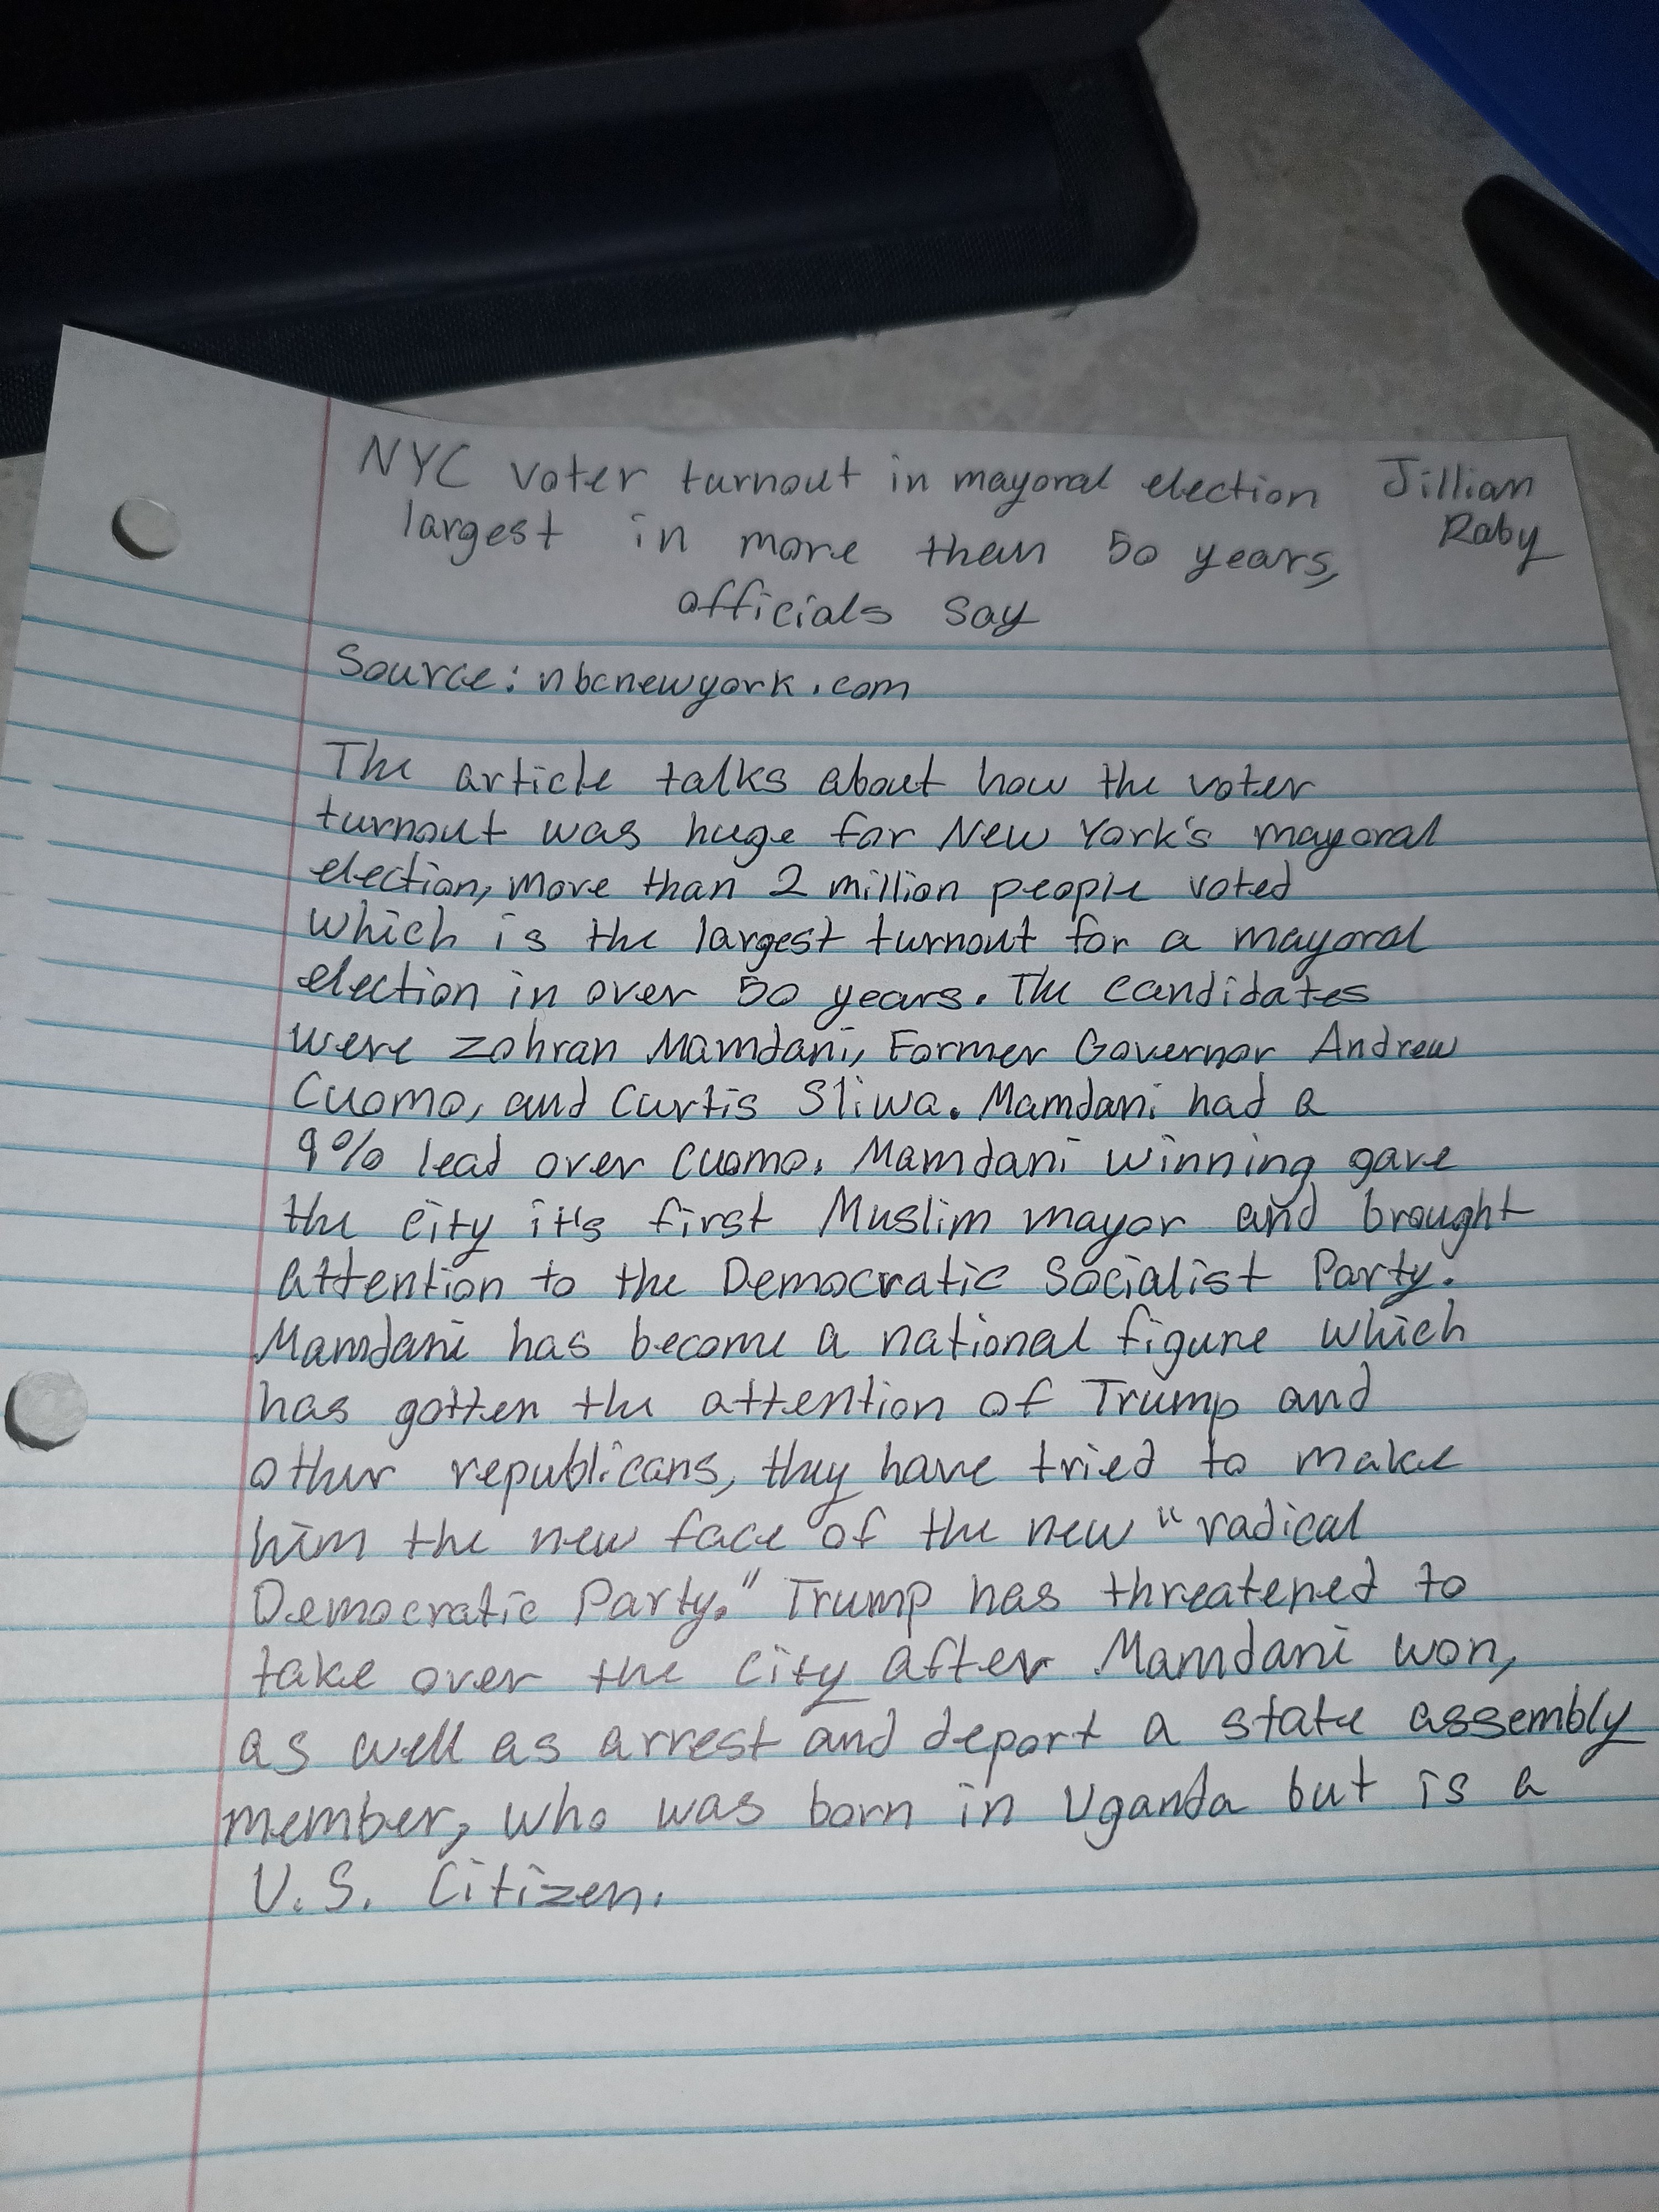 NYC voter turnout in mayoral election
largest in more than 50 years,
officials say
Jillian
Raby
Source: nbcnewyork.com
The article talks about how the voter
turnout was huge for New York's mayoral
election, more than 2 million people voted
which is the largest turnout for a mayoral
election in over 50 years. The candidates
were Zohran Mamdani, Former Governor Andrew
Cuomo, and Curtis Sliwa. Mamdani had a
9% lead over Cuomo. Mamdani winning gave
the city it's first Muslim mayor and brought
attention to the Democratic Socialist Party.
Mamdani has become a national figure which
has gotten the attention of Trump and
other republicans, they have tried to make
him the new face of the new "radical
Democratic Party." Trump has threatened to
take over the city after Mamdani won,
as well as arrest and deport a state assembly
member, who was born in Uganda but is a
U.S. Citizen.